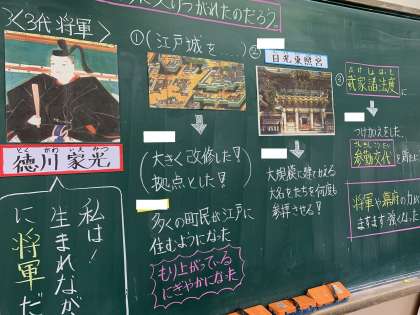 受けつがれたのだろう。
〈3代将軍〉
とくがわいえみつ
徳川家光
私は！
生まれなが
に将軍だ
①(江戸城を……)
(大きく改修した！
拠点とした！)
多くの町民が江戸に
住むようになった
もり上がっている
にぎやかになった
②
日光東照宮
大規模に建てかえ
大名をたちを何度も
参拝させる！
③
ぶけしょはっと
武家諸法度に
つけかえをした。
さんきんこうたい
参勤交代を
将軍や幕府の力が
ますます強くなった